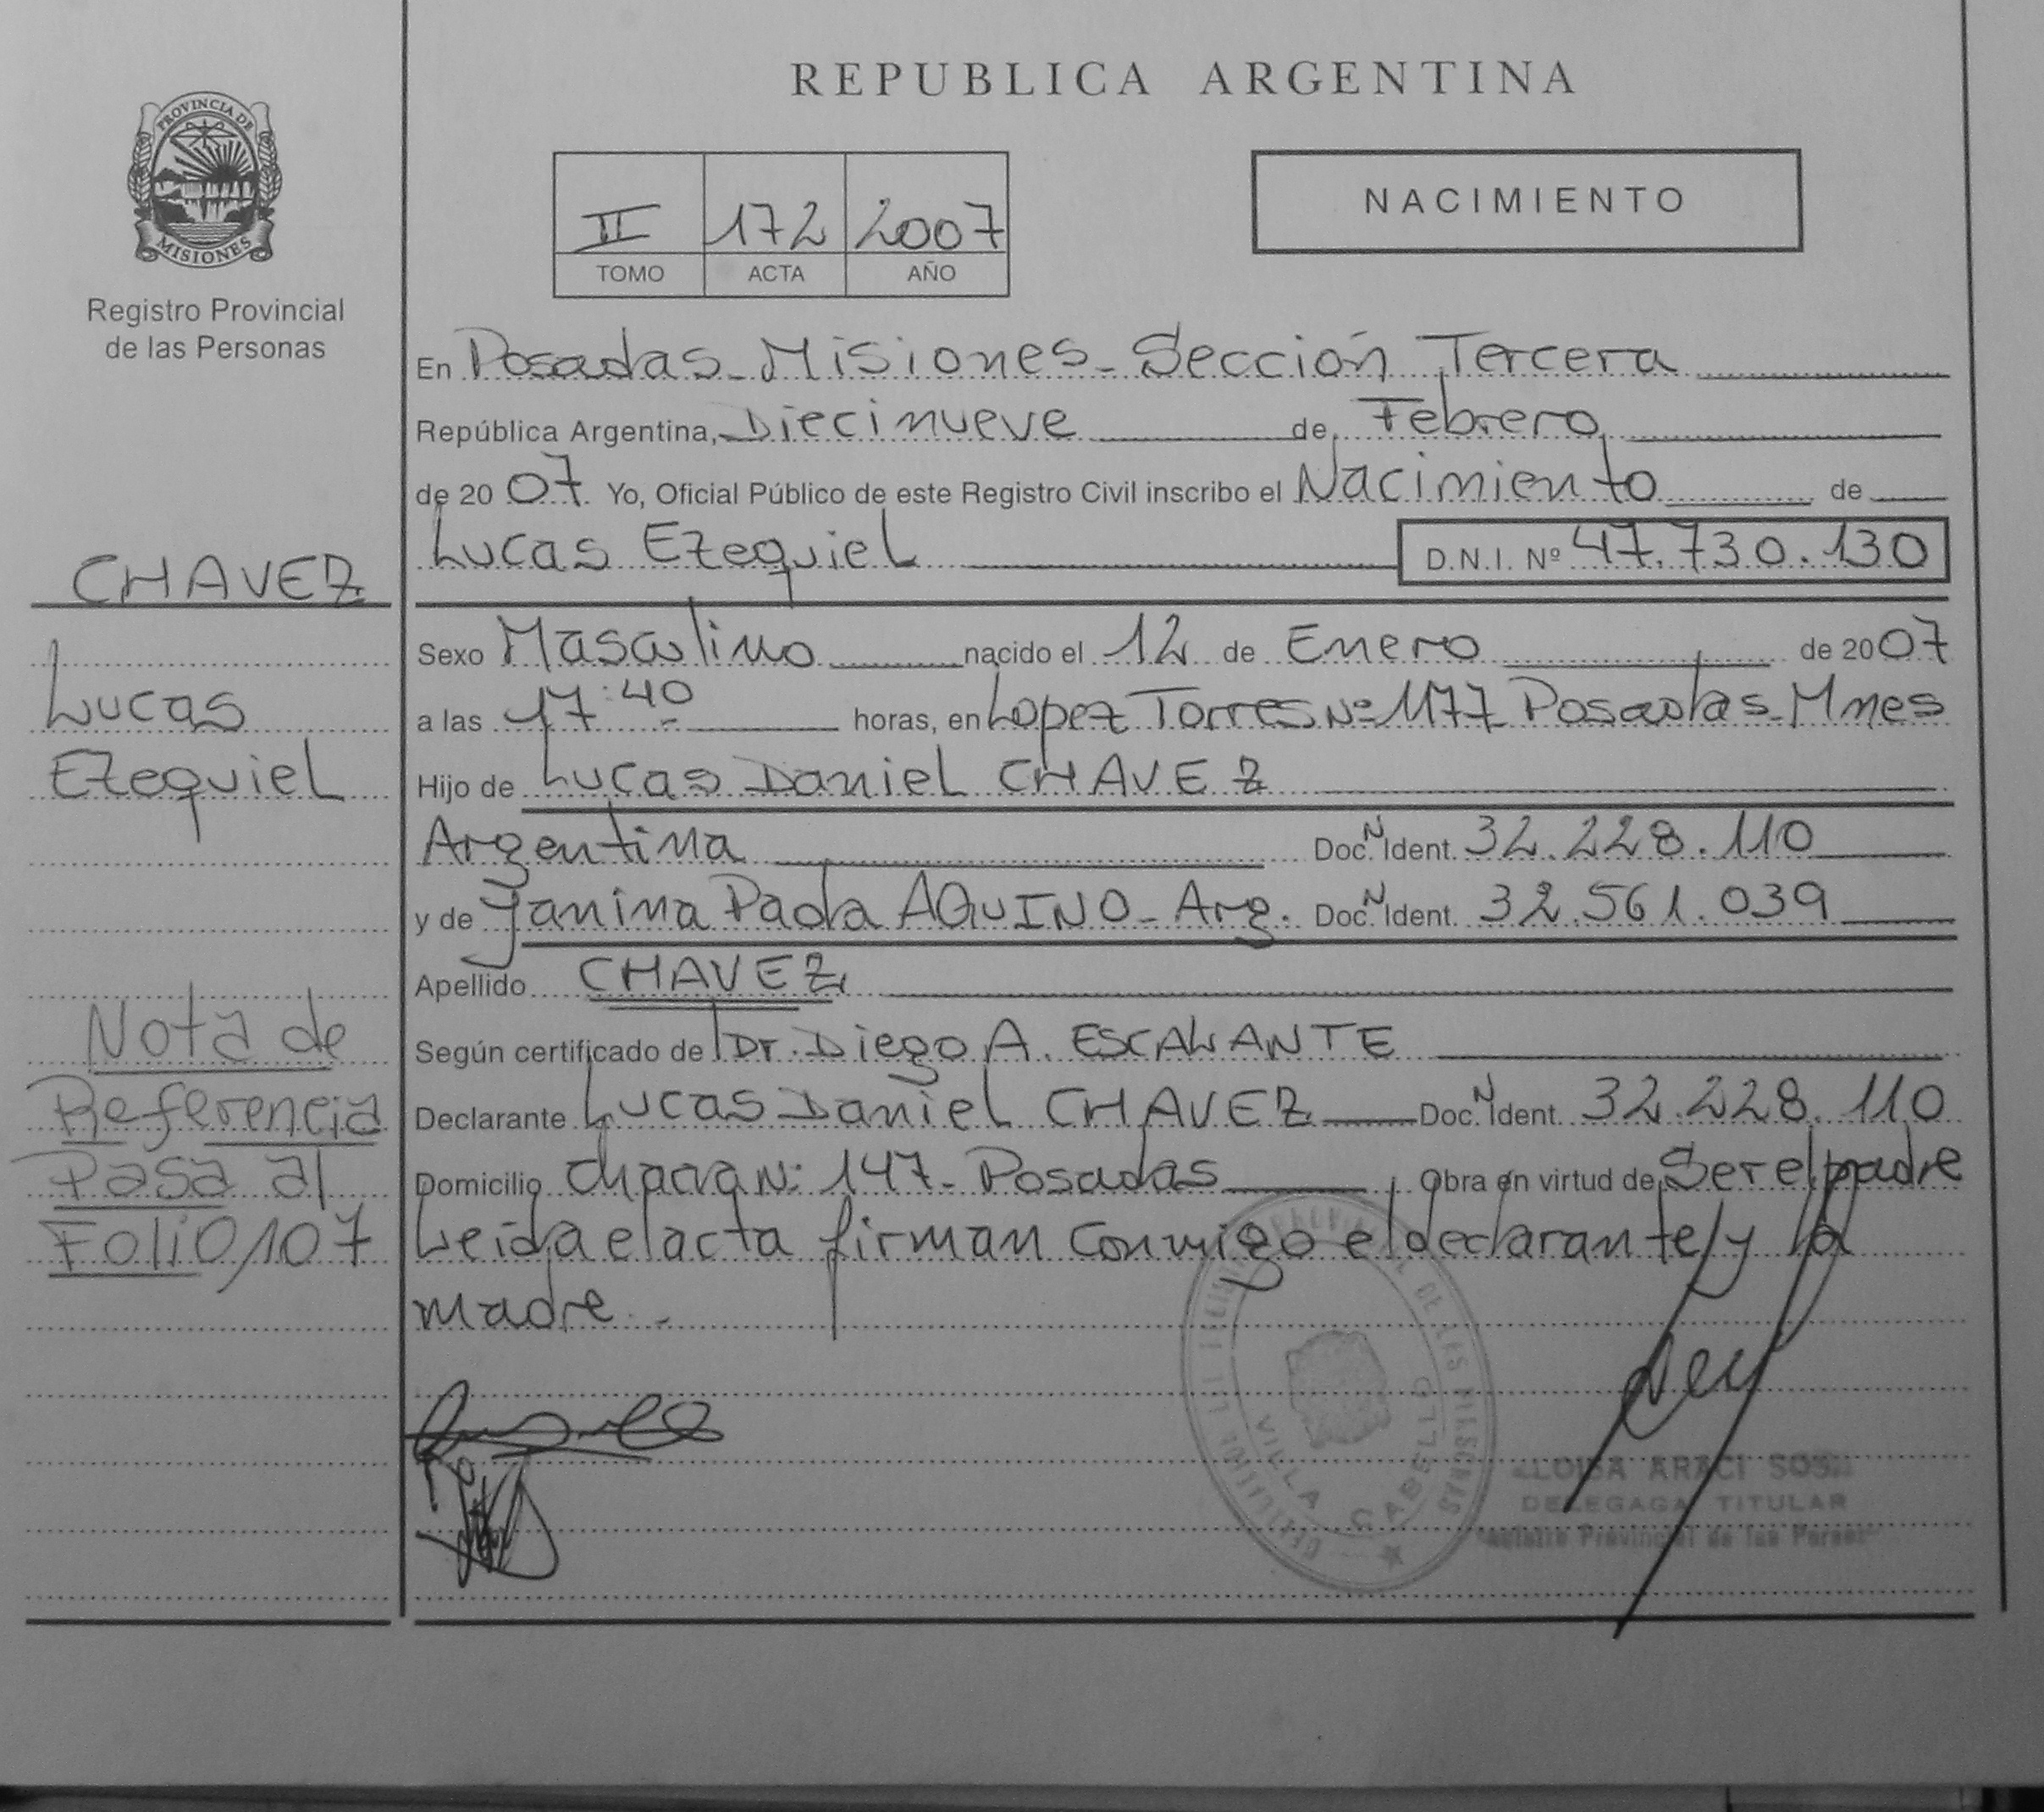 REPUBLICA ARGENTINA
PROVINCIA DE
MISIONES
Registro Provincial
de las Personas
II 172 2007
TOMO ACTA AÑO
NACIMIENTO
En Posadas - Misiones - Sección Tercera
República Argentina, Diecinueve de Febrero
de 2007 Yo, Oficial Público de este Registro Civil inscribo el Nacimiento de
Lucas Ezequiel D.N.I. Nº 47.730.130
CHAVEZ
Lucas
Ezequiel
Sexo Masculino nacido el 12 de Enero de 2007
a las 17:40 horas, en Lopez Torres Nº 1177 Posadas - Mnes
Hijo de Lucas Daniel CHAVEZ
Argentina Doc. N Ident. 32.228.110
y de Janina Paola AQUINO - Arg. Doc. N Ident. 32.561.039
Apellido CHAVEZ
Según certificado de Dr. Diego A. ESCALANTE
Declarante Lucas Daniel CHAVEZ Doc. N Ident. 32.228.110
Domicilio Chacra Nº 147 - Posadas Obra en virtud de Ser el padre
Leida el acta firman conmigo el declarante y la
madre.-
Nota de
Referencia
Pasa al
Folio 107
VILLA CABELLO
ARACI SOSA
DELEGADA TITULAR
Registro Provincial de las Personas